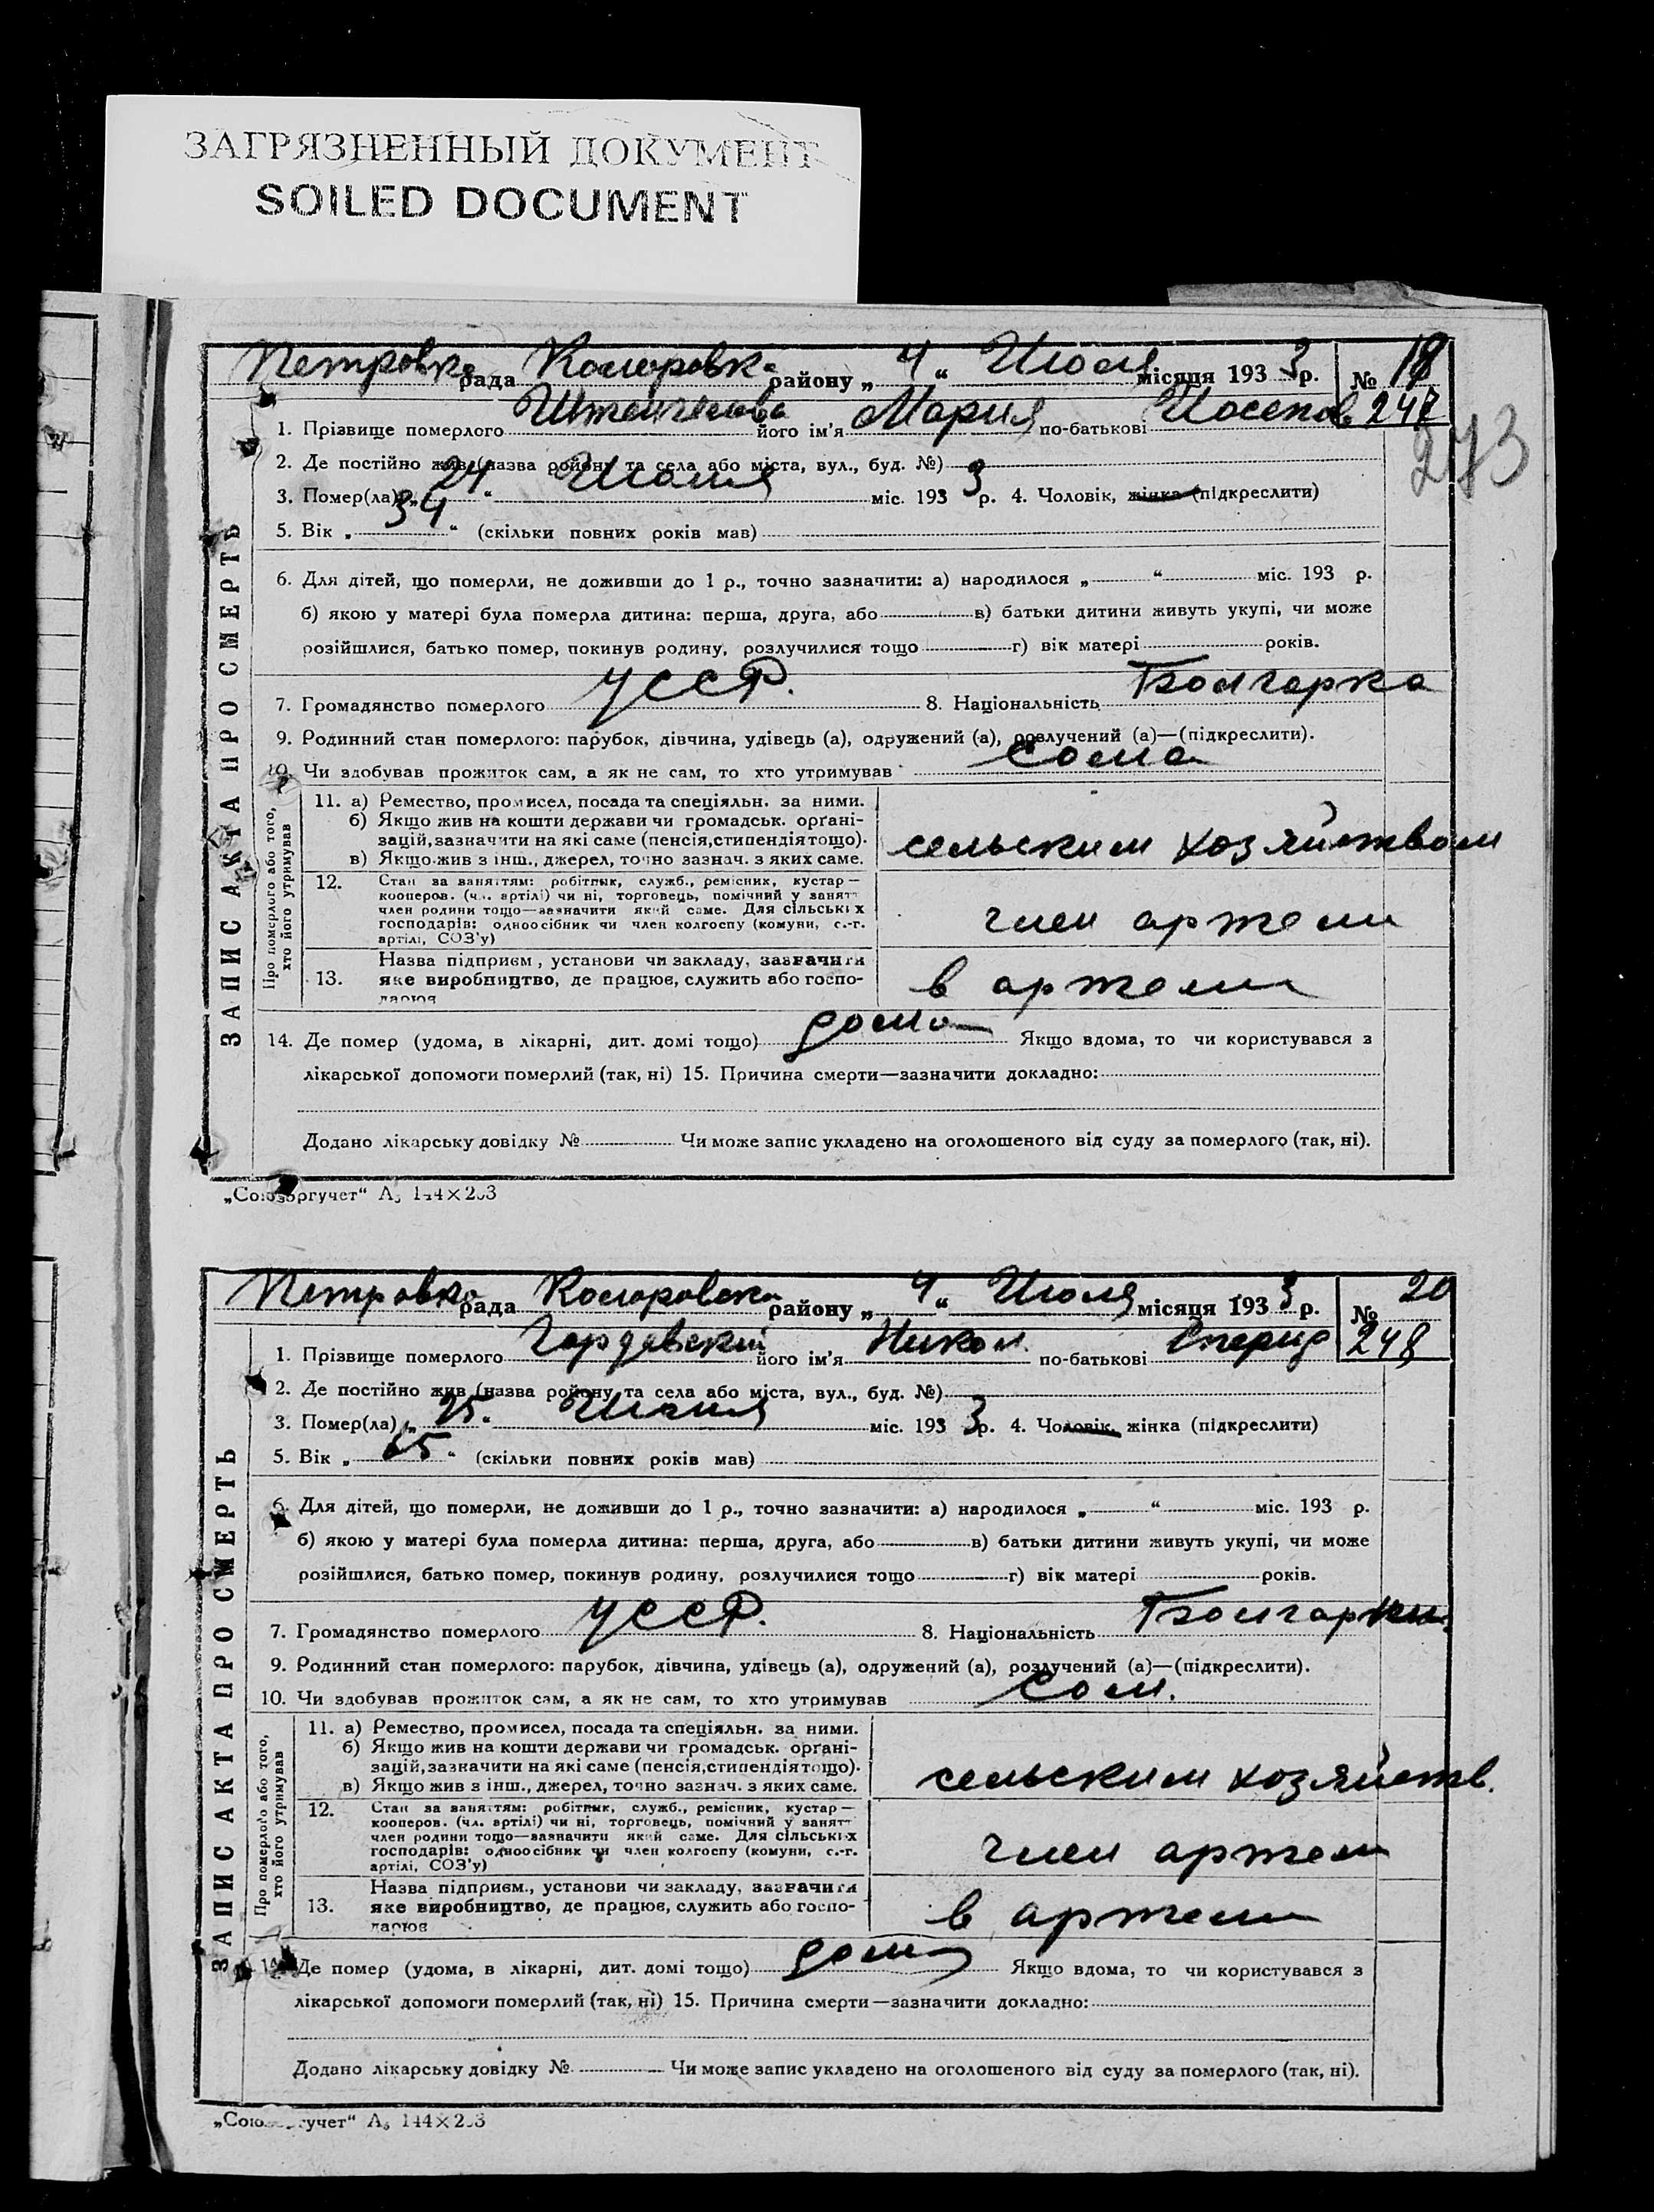 ЗАГРЯЗНЕННЫЙ ДОКУМЕНТ
SOILED DOCUMENT
273
Петровка рада района „ 4 “ Июля місяця 193 3 р. № 18
247
1. Прізвище померлого його ім'я Мария по-батькові Иосепов
2. Де постійно жив (назва району та села або міста, вул., буд. №)
3. Помер(ла) „ 24 “ міс. 193 3 р. 4. Чоловік, жінка (підкреслити)
5. Вік „ 34 “ (скільки повних років мав)
6. Для дітей, що померли, не доживши до 1 р., точно зазначити: а) народилося „ “ міс. 193 р.
б) якою у матері була померла дитина: перша, друга, або в) батьки дитини живуть укупі, чи може
розійшлися, батько помер, покинув родину, розлучилися тощо г) вік матері років.
7. Громадянство померлого УССР. 8. Національність Болгарка
9. Родинний стан померлого: парубок, дівчина, удівець (а), одружений (а), розлучений (а)—(підкреслити).
10. Чи здобував прожиток сам, а як не сам, то хто утримував сома
ЗАПИС АКТА ПРО СМЕРТЬ
Про померлого або того,
хто його утримував
11. а) Ремество, промисел, посада та спеціяльн. за ними.
б) Якщо жив на кошти держави чи громадськ. орґані-
зацій, зазначити на які саме (пенсія, стипендія тощо).
в) Якщо жив з інш., джерел, точно зазнач. з яких саме.
сельским хозяйством
12. Стан за заняттям: робітник, служб., ремісник, кустар —
кооперов. (чл. артілі) чи ні, торговець, помічний у занятт
член родини тощо—зазначити який саме. Для сільських
господарів: одноосібник чи член колгоспу (комуни, с.-г.
артілі, СОЗ'у)
член артели
13. Назва підприєм., установи чи закладу, зазначити
яке виробництво, де працює, служить або госпо-
дарює
в артели
14. Де помер (удома, в лікарні, дит. домі тощо) дома Якщо вдома, то чи користувався з
лікарської допомоги померлий (так, ні) 15. Причина смерти—зазначити докладно:
Додано лікарську довідку № Чи може запис укладено на оголошеного від суду за померлого (так, ні).
„Союзоргучет“ А₅ 144×203
Петровка рада району „ 4 “ Июля місяця 193 3 р. № 20
248
1. Прізвище померлого його ім'я Никол. по-батькові Сперид
2. Де постійно жив (назва району та села або міста, вул., буд. №)
3. Помер(ла) „ 25. міс. 193 3 р. 4. Чоловік, жінка (підкреслити)
5. Вік „ 65 “ (скільки повних років мав)
6. Для дітей, що померли, не доживши до 1 р., точно зазначити: а) народилося „ “ міс. 193 р.
б) якою у матері була померла дитина: перша, друга, або в) батьки дитини живуть укупі, чи може
розійшлися, батько помер, покинув родину, розлучилися тощо г) вік матері років.
7. Громадянство померлого УССР. 8. Національність
9. Родинний стан померлого: парубок, дівчина, удівець (а), одружений (а), розлучений (а)—(підкреслити).
10. Чи здобував прожиток сам, а як не сам, то хто утримував сом.
ЗАПИС АКТА ПРО СМЕРТЬ
Про померлого або того,
хто його утримував
11. а) Ремество, промисел, посада та спеціяльн. за ними.
б) Якщо жив на кошти держави чи громадськ. орґані-
зацій, зазначити на які саме (пенсія, стипендія тощо).
в) Якщо жив з інш., джерел, точно зазнач. з яких саме.
сельским хозяйств.
12. Стан за заняттям: робітник, служб., ремісник, кустар —
кооперов. (чл. артілі) чи ні, торговець, помічний у занятт
член родини тощо—зазначити який саме. Для сільських
господарів: одноосібник чи член колгоспу (комуни, с.-г.
артілі, СОЗ'у)
член артели
13. Назва підприєм., установи чи закладу, зазначити
яке виробництво, де працює, служить або госпо-
дарює
в артели
14. Де помер (удома, в лікарні, дит. домі тощо) дома Якщо вдома, то чи користувався з
лікарської допомоги померлий (так, ні) 15. Причина смерти—зазначити докладно:
Додано лікарську довідку № Чи може запис укладено на оголошеного від суду за померлого (так, ні).
„Союзоргучет“ А₅ 144×203